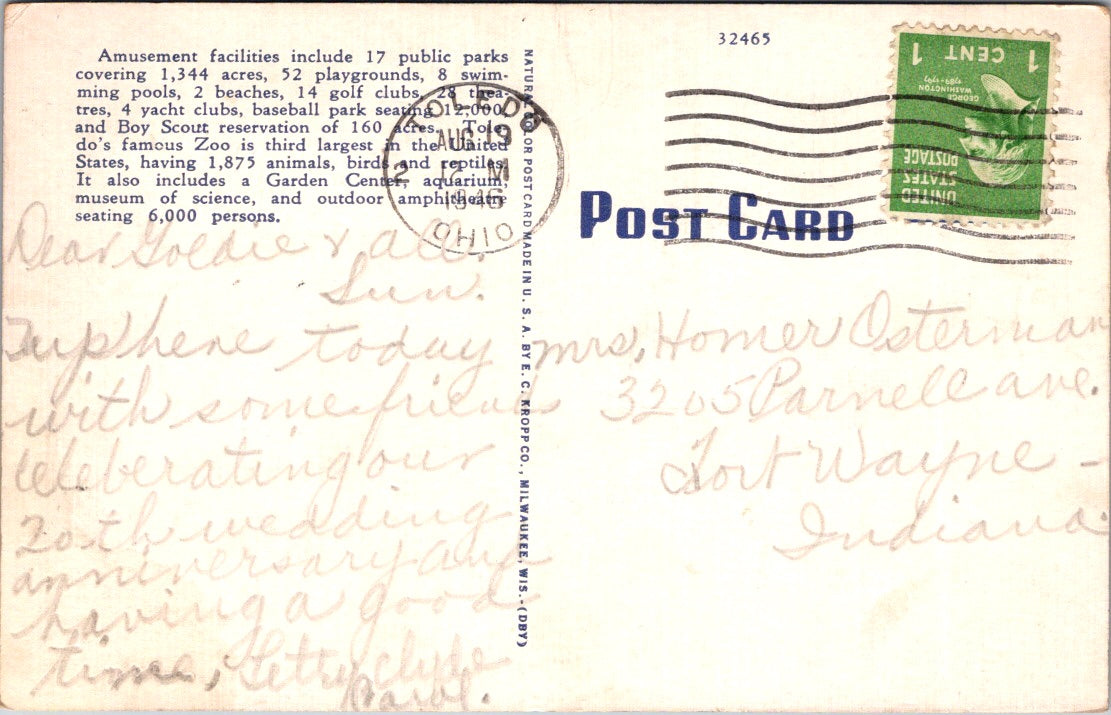 Amusement facilities include 17 public parks
covering 1,344 acres, 52 playgrounds, 8 swim-
ming pools, 2 beaches, 14 golf clubs, 28 thea-
tres, 4 yacht clubs, baseball park seating 12,000,
and Boy Scout reservation of 160 acres. Tole-
do's famous Zoo is third largest in the United
States, having 1,875 animals, birds and reptiles.
It also includes a Garden Center, aquarium,
museum of science, and outdoor amphitheatre
seating 6,000 persons.
Dear Goldie & all.
Sun.
up here today
with some friends
celeberating our
20th wedding
anniversary and
having a good
time, Clyde
Carol.
NATURAL COLOR POST CARD MADE IN U. S. A. BY E. C. KROPP CO., MILWAUKEE, WIS.-(DBY)
32465
TOLEDO
AUG 19
2 12 M
1946
OHIO
1 CENT 1
GEORGE
WASHINGTON
1789-1797
UNITED
STATES
POSTAGE
POST CARD
Mrs, Homer Osterman
3205 Parnell ave.
Fort Wayne -
Indiana.